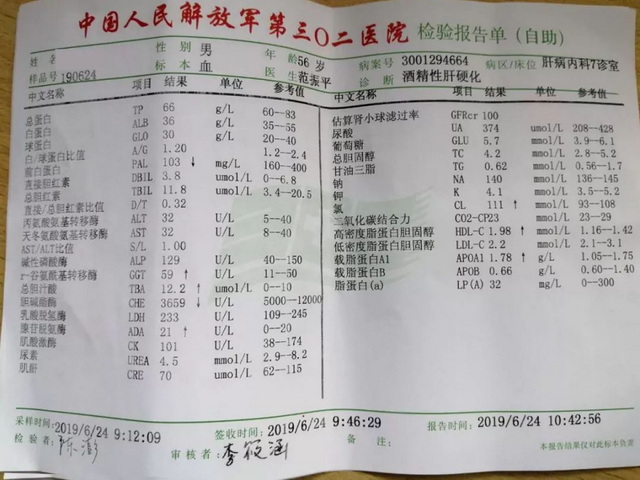 中国人民解放军第三〇二医院 检验报告单(自助)
姓 性别 男 年龄56 岁 病案号 3001294664 病区/床位 肝病内科7诊室
样品号 190624 标本 血 医生 范振平 诊断 酒精性肝硬化
中文名称 项目 结果 单位 参考值 中文名称 项目 结果 单位 参考值
总蛋白 TP 66 g/L 60--83
白蛋白 ALB 36 g/L 35--55
球蛋白 GLO 30 g/L 20--40
白/球蛋白比值 A/G 1.20 1.2--2.4
前白蛋白 PAL 103 ↓ mg/L 160--400
直接胆红素 DBIL 3.8 umol/L 0--6.8
总胆红素 TBIL 11.8 umol/L 3.4--20.5
直接/总胆红素比值 D/T 0.32
丙氨酸氨基转移酶 ALT 32 U/L 5--40
天冬氨酸氨基转移酶 AST 32 U/L 8--40
AST/ALT比值 S/L 1.00
碱性磷酸酶 ALP 129 U/L 40--150
r-谷氨酰基转移酶 GGT 59 ↑ U/L 11--50
总胆汁酸 TBA 12.2 ↑ umol/L 0--10
胆碱酯酶 CHE 3659 ↓ U/L 5000--12000
乳酸脱氢酶 LDH 233 U/L 109--245
腺苷脱氨酶 ADA 21 ↑ U/L 0--20
肌酸激酶 CK 101 U/L 38--174
尿素 UREA 4.5 mmol/L 2.9--8.2
肌酐 CRE 70 umol/L 62--115
估算肾小球滤过率 GFRcr 100
尿酸 UA 374 umol/L 208--428
葡萄糖 GLU 5.7 mmol/L 3.9--6.1
总胆固醇 TC 4.2 mmol/L 2.8--5.2
甘油三脂 TG 0.62 mmol/L 0.56--1.7
钠 NA 140 mmol/L 136--145
钾 K 4.1 mmol/L 3.5--5.2
氯 CL 111 ↑ mmol/L 93--108
二氧化碳结合力 CO2-CP23 mmol/L 23--29
高密度脂蛋白胆固醇 HDL-C 1.98 ↑ mmol/L 1.16--1.42
低密度脂蛋白胆固醇 LDL-C 2.2 mmol/L 2.1--3.1
载脂蛋白A1 APOA1 1.78 ↑ g/L 1.05--1.75
载脂蛋白B APOB 0.66 g/L 0.60--1.40
脂蛋白(a) LP(A) 32 mg/L 0--300
采样时间:2019/6/24 9:12:09 签收时间:2019/6/24 9:46:29 报告时间:2019/6/24 10:42:56
检验者:陈澎 审核者:李筱涵 备注: 本报告结果仅对此标本负责